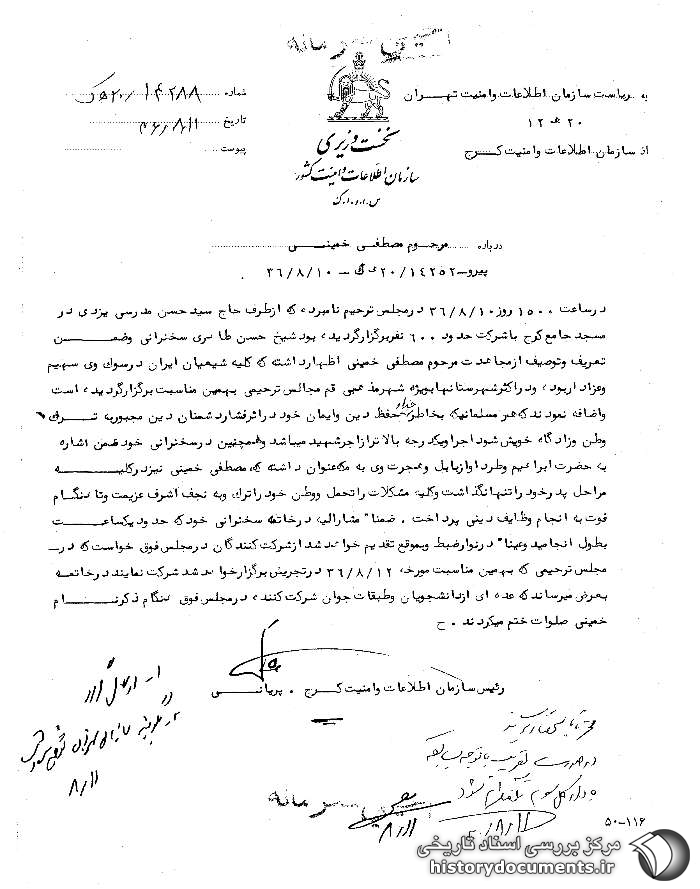 خیلی محرمانه
به ریاست سازمان اطلاعات و امنیت تهران
۲۰ هـ ۱۲
از سازمان اطلاعات و امنیت کرج
نخست وزیری
سازمان اطلاعات و امنیت کشور
س.ا.و.ا.ک
شماره ۱۴۲۸۸/
تاریخ ۳۶/۸/۱۱
پیوست
درباره مرحوم مصطفی خمینی
پیرو ۲۰/۱۴۲۵۲ هـ ک ـ ۳۶/۸/۱۰
در ساعت ۱۵۰۰ روز ۳۶/۸/۱۰ در مجلس ترحیم نامبرده که از طرف حاج سید حسن مدرسی یزدی در
مسجد جامع کرج با شرکت حدود ۶۰۰ نفر برگزار گردیده بود شیخ حسن طاهری سخنرانی و ضمن
تعریف و توصیف از مجاهدت مرحوم مصطفی خمینی اظهار داشته که کلیه شیعیان ایران در سوک وی سهیم
و عزادار بوده و در اکثر شهرستانها بویژه شهر مذهبی قم مجالس ترحیمی بهمین مناسبت برگزار گردیده است
و اضافه نمودند که هر مسلمانیکه بخاطر خدا و حفظ دین و ایمان خود در اثر فشار دشمنان دین مجبور به ترک
وطن و زادگاه خویش شود اجر او یکدرجه بالاتر از اجر شهید میباشد و همچنین در سخنرانی خود ضمن اشاره
به حضرت ابراهیم و طرد او از بابل و هجرت وی به مکه عنوان داشته که مصطفی خمینی نیز در کلیه
مراحل پدر خود را تنها نگذاشت و کلیه مشکلات را تحمل و وطن خود را ترک و به نجف اشرف عزیمت و تا هنگام
فوت به انجام وظایف دینی پرداخت . ضمنا" مشارالیه در خاتمه سخنرانی خود که حدود یکساعت
بطول انجامید و عینا" در نوار ضبط و بموقع تقدیم خواهد شد از شرکت کنندگان در مجلس فوق خواست که در
مجلس ترحیمی که بهمین مناسبت مورخه ۳۶/۸/۱۲ در تجریش برگزار خواهد شد شرکت نمایند در خاتمه
بعرض میرساند که عده ای از دانشجویان و طبقات جوان شرکت کننده در مجلس فوق هنگام ذکر نام
خمینی صلوات ختم میکردند . ح
رئیس سازمان اطلاعات و امنیت کرج . پریانی
۸/۱۱
خیلی محرمانه
۸/۱۱
۵۰-۱۱۶
مرکز بررسی اسناد تاریخی
historydocuments.ir